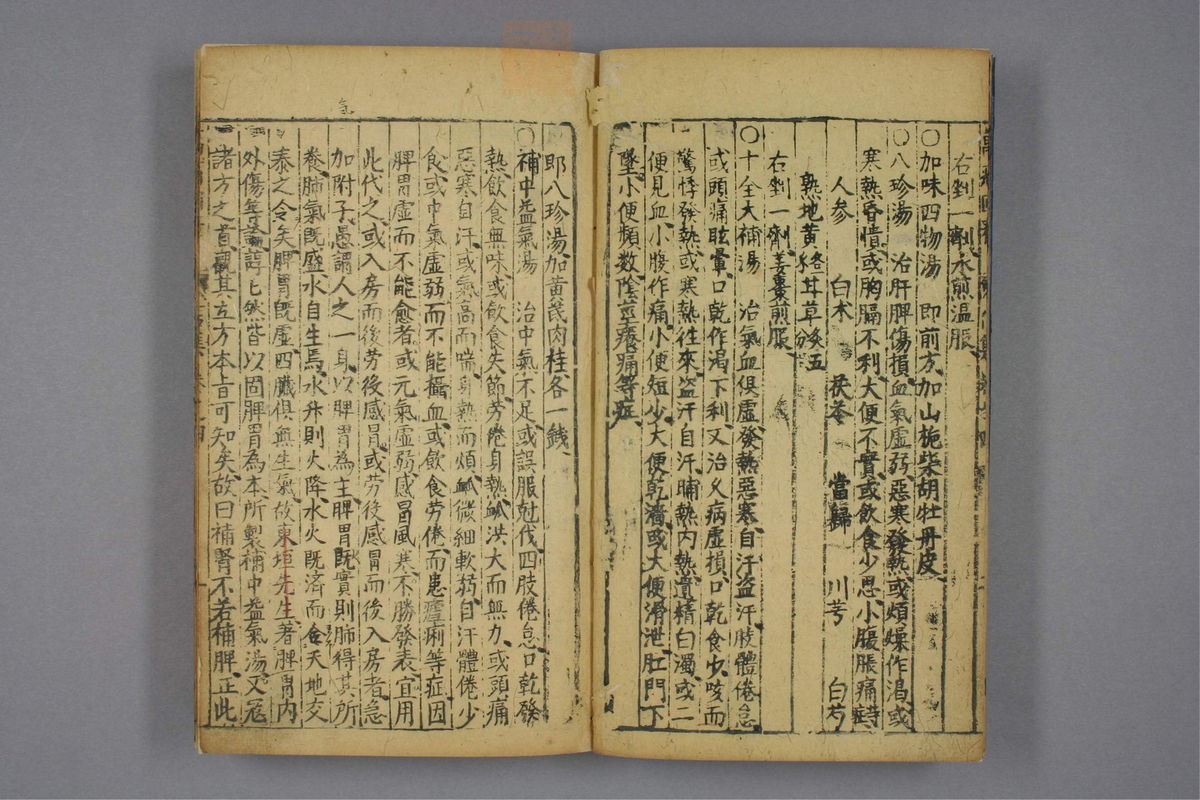 右剉一劑水煎温服
〇加味四物湯　即前方加山梔柴胡牡丹皮
〇八珍湯　治肝脾傷損血氣虚弱惡寒發熱或煩燥作渴或
寒熱昏憒或胸膈不利大便不實或飲食少思小腹脹痛
人參　白朮　茯苓　當歸　川芎　白芍
熟地黄　甘草炙五分
右剉一劑姜棗煎服
〇十全大補湯　治氣血俱虚發熱惡寒自汗盗汗肢體倦怠
或頭痛眩暈口乾作渴下利又治久病虚損口乾食少咳而
驚悸發熱或寒熱往來盗汗自汗晡熱内熱遺精白濁或二
便見血小腹作痛小便短少大便乾濇或大便滑泄肛門下
墜小便頻數陰莖痛等症
即八珍湯加黄芪肉桂各一錢
〇補中益氣湯　治中氣不足或誤服尅伐四肢倦怠口乾發
熱飲食無味或飲食失節勞倦身熱脉洪大而無力或頭痛
惡寒自汗或氣高而喘身熱而煩脉微細軟弱自汗體倦少
食或中氣虚弱而不能攝血或飲食勞倦而患瘧痢等症因
脾胃虚而不能愈者或元氣虚弱感冒風寒不勝發表宜用
此代之或入房而後勞後感冒或勞後感冒而後入房者急
加附子愚謂人之一身以脾胃為主脾胃既實則肺得其所
養肺氣既盛水自生焉水升則火降水火既濟而合天地交
泰之令矣脾胃既虚四臟俱無生氣故東垣先生著脾胃内
外傷等論諄〻然皆以固脾胃為本所製補中益氣湯又冠
諸方之首觀其立方本旨可知矣故曰補腎不若補脾正此